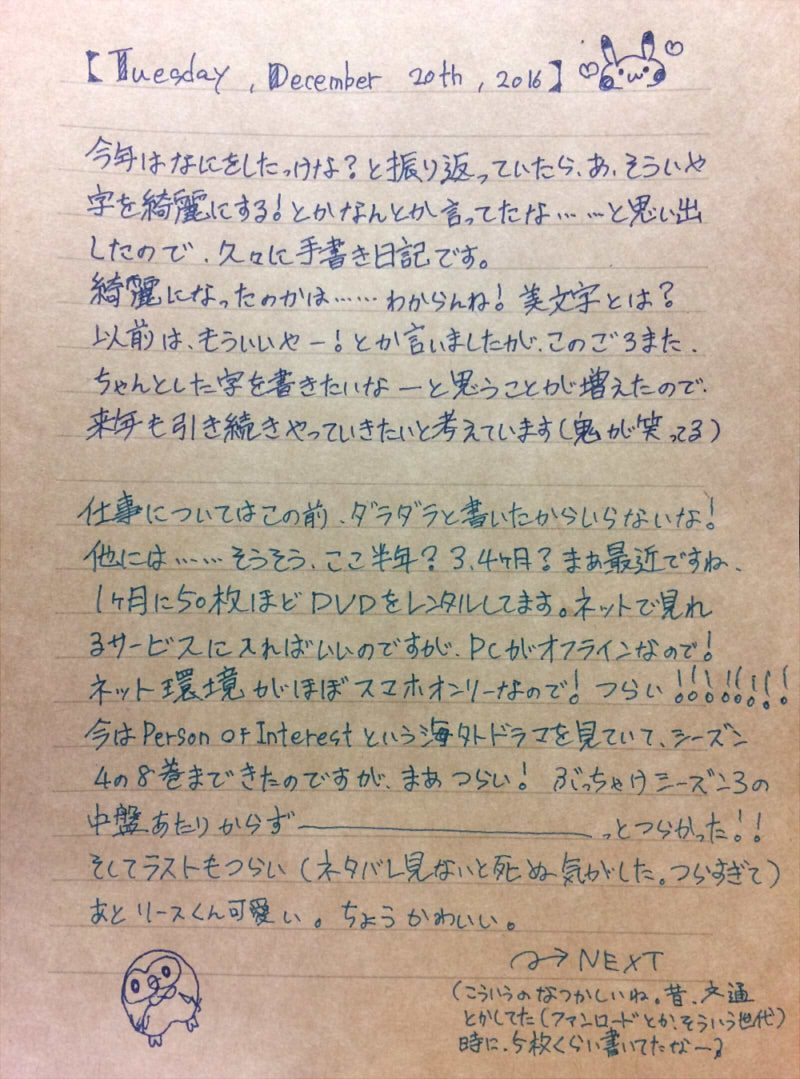 【Tuesday, December 20th, 2016】
今年はなにをしたっけな？と振り返っていたら、あ、そういや
字を綺麗にする！とかなんとか言ってたな……と思い出
したので、久々に手書き日記です。
綺麗になったのかは……わからんね！美文字とは？
以前は、もういいやー！とか言いましたが、このごろまた、
ちゃんとした字を書きたいなーと思うことが増えたので、
来年も引き続きやっていきたいと考えています(鬼が笑ってる)
仕事についてはこの前、ダラダラと書いたからいらないな！
他には……そうそう、ここ半年？3、4ヶ月？まあ最近ですね、
1ヶ月に50枚ほどDVDをレンタルしてます。ネットで見れ
るサービスに入ればいいのですが、PCがオフラインなので！
ネット環境がほぼスマホオンリーなので！つらい!!!!!!!!
今はPerson of Interestという海外ドラマを見ていて、シーズン
4の8巻まできたのですが、まあつらい！ぶっちゃけシーズン3の
中盤あたりからず――――――――っとつらかった!!
そしてラストもつらい(ネタバレ見ないと死ぬ気がした。つらすぎて)
あとリースくん可愛い。ちょうかわいい。
→NEXT
(こういうのなつかしいね。昔、文通
とかしてた(ファンロードとか、そういう世代)
時に、5枚くらい書いてたなー)